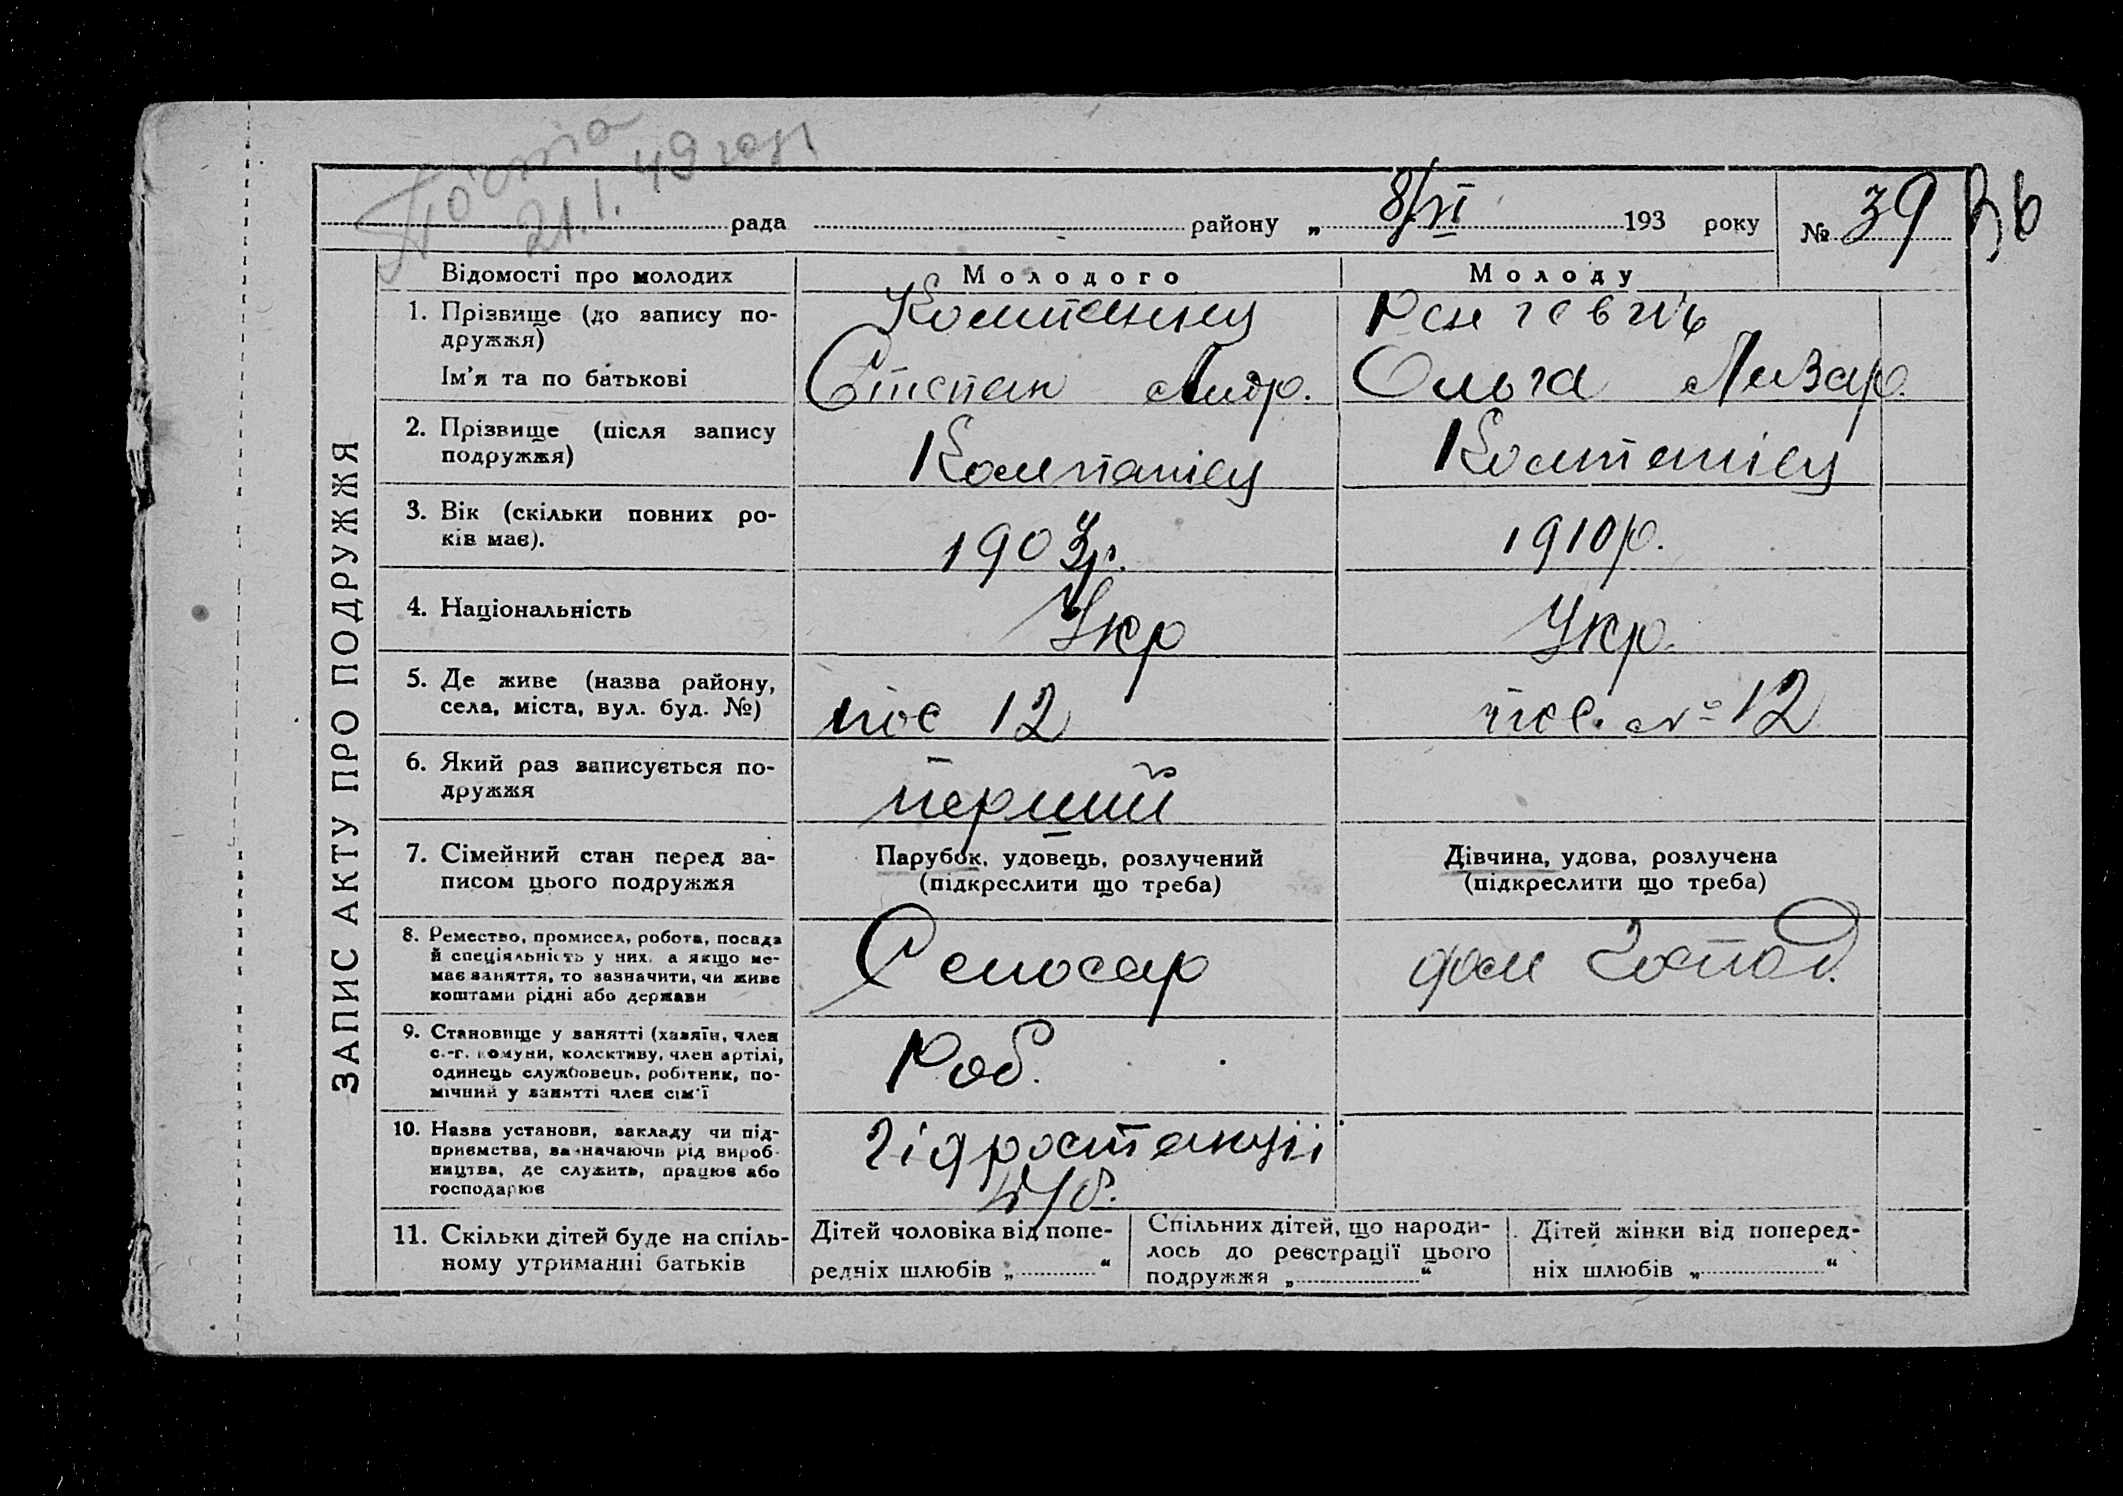 21.I.49
рада района „ 8/VI 193 року № 39 36
ЗАПИС АКТУ ПРО ПОДРУЖЖЯ
Відомості про молодих Молодого Молоду
1. Прізвище (до запису по-
дружжя)
Компаниец
Ім'я та по батькові Степан Андр. Ольга Лазар.
2. Прізвище (після запису
подружжя) Компаніец Компаніец
3. Вік (скільки повних ро-
ків має). 1903р. 1910р.
4. Національність Укр Укр.
5. Де живе (назва району,
села, міста, вул. буд. №) пос 12 пос. № 12
6. Який раз записується по-
дружжя перший
7. Сімейний стан перед за-
писом цього подружжя
Парубок, удовець, розлучений
(підкреслити що треба)
Дівчина, удова, розлучена
(підкреслити що треба)
8. Ремество, промисел, робота, посада
й спеціяльність у них, а якщо не-
має заняття, то зазначити, чи живе
коштами рідні або держави
Слюсар дом господ.
9. Становище у занятті (хазяїн, член
с.-г. комуни, колективу, член артілі,
одинець службовець, робітник, по-
мічний у занятті член сім'ї
Роб.
10. Назва установи, закладу чи під-
приємства, зазначаючи рід вироб-
ництва, де служить, працює або
господарює
Гідростанції
11. Скільки дітей буде на спіль-
ному утриманні батьків
Дітей чоловіка від попе-
редніх шлюбів „ “
Спільних дітей, що народи-
лось до реєстрації цього
подружжя „ “
Дітей жінки від поперед-
ніх шлюбів „ “